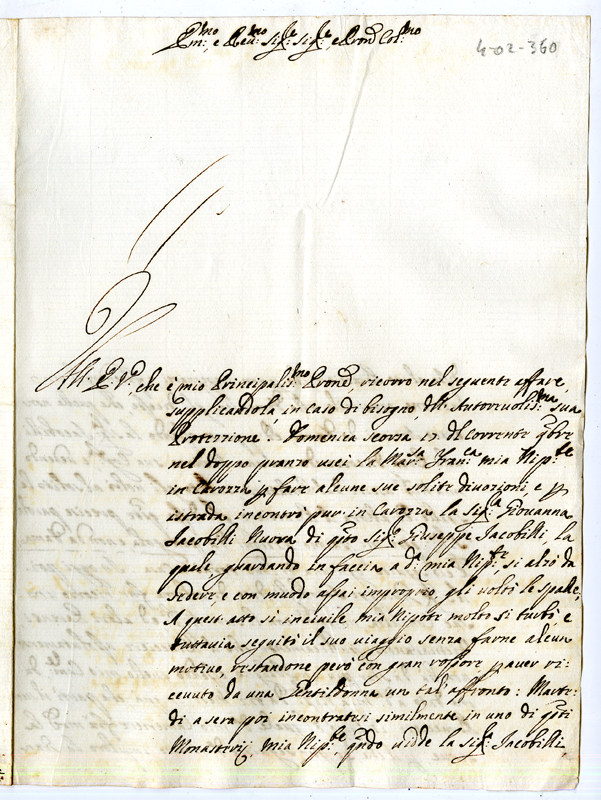 Em:mo, e Rev:mo Sig:re Sig:re, e Pron Col:mo
4-02-360
All. E. V., che è mio Principalis:mo Prone, ricorro nel seguente affare,
supplicandola, in caso di bisogno, dell'Autorevolis:ma sua
Protezzione. Domenica scorsa 17 del corrente 9bre
nel doppo pranzo uscì la Mar:sa Fran:ca mia Nip:te
in Carozza p fare alcune sue solite divozioni e p
istrada incontrò pur in Carozza la Sig:ra Giovanna
Jacobilli Nuora di qsto Sig:re Giuseppe Jacobilli, la
quale guardando in faccia a da mia Nip:te, si alzò da
sedere, e con muodo assai improprio, gli voltò le spalle,
A quest'atto sì incivile mia Nipote molto si turbò e
tuttavia seguitò il suo viaggio senza farne alcun
motivo, restandone però con gran rossore p aver ri-
cevuto da una Gentildonna un tal'affronto: Marte-
dì a sera poi incontratesi similmente in uno di qsti
Monasterij, mia Nip:te, qndo vidde la Sig:ra Jacobilli,